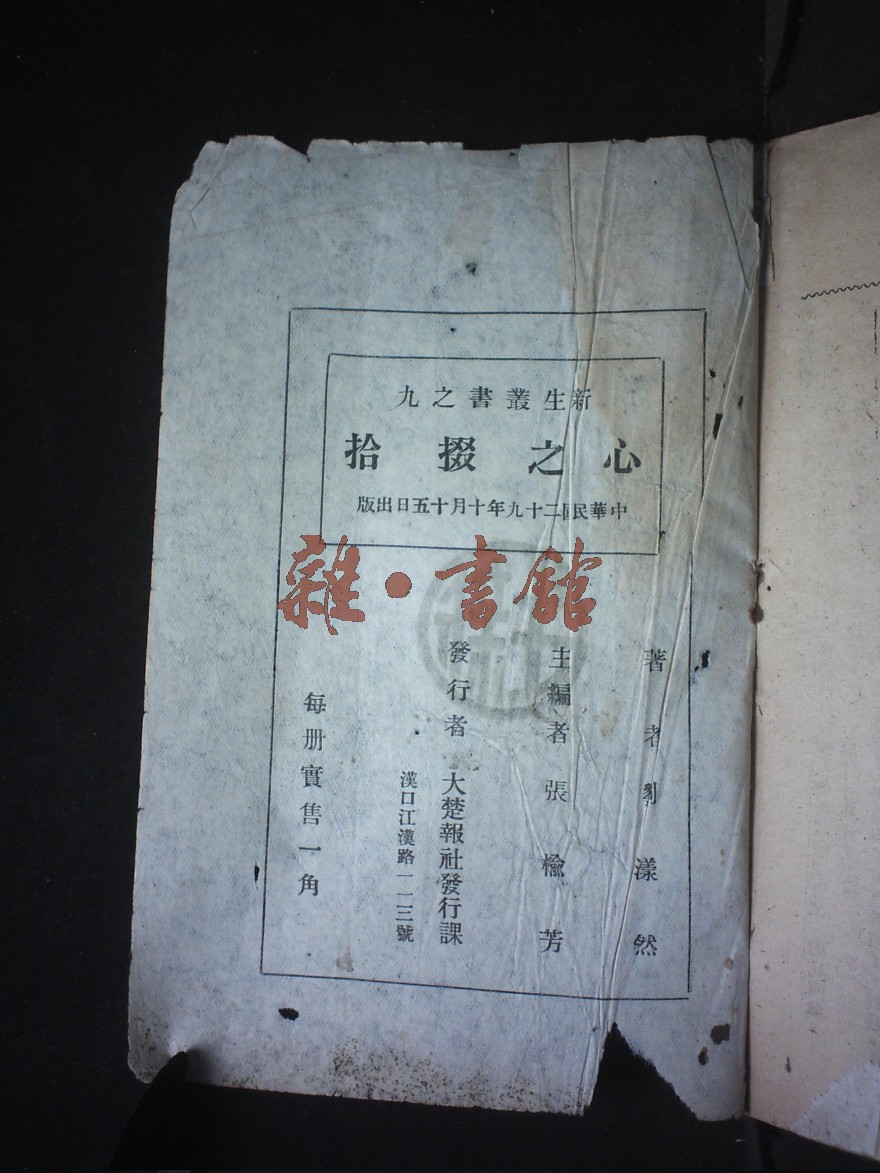 新生叢書之九
心之掇拾
中華民國二十九年十月十五日出版
雜·書館
著者 劉漾然
主編者 張榆芳
發行者 大楚報社發行課
漢口江漢路一一三號
每册實售一角